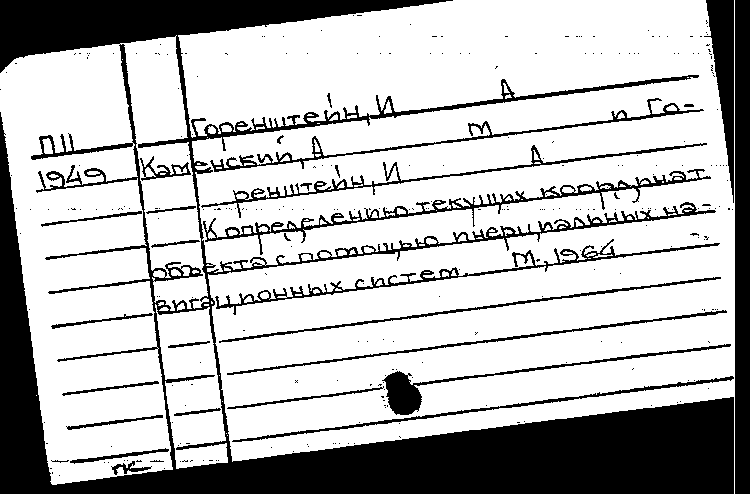 Горенштейн, И А
П11
1949 Каменский, А М п Го-
ренштейн, И А
К определению текущих координат
объекта с помощью инерциальных на-
вигационных систем. М., 1964
пк